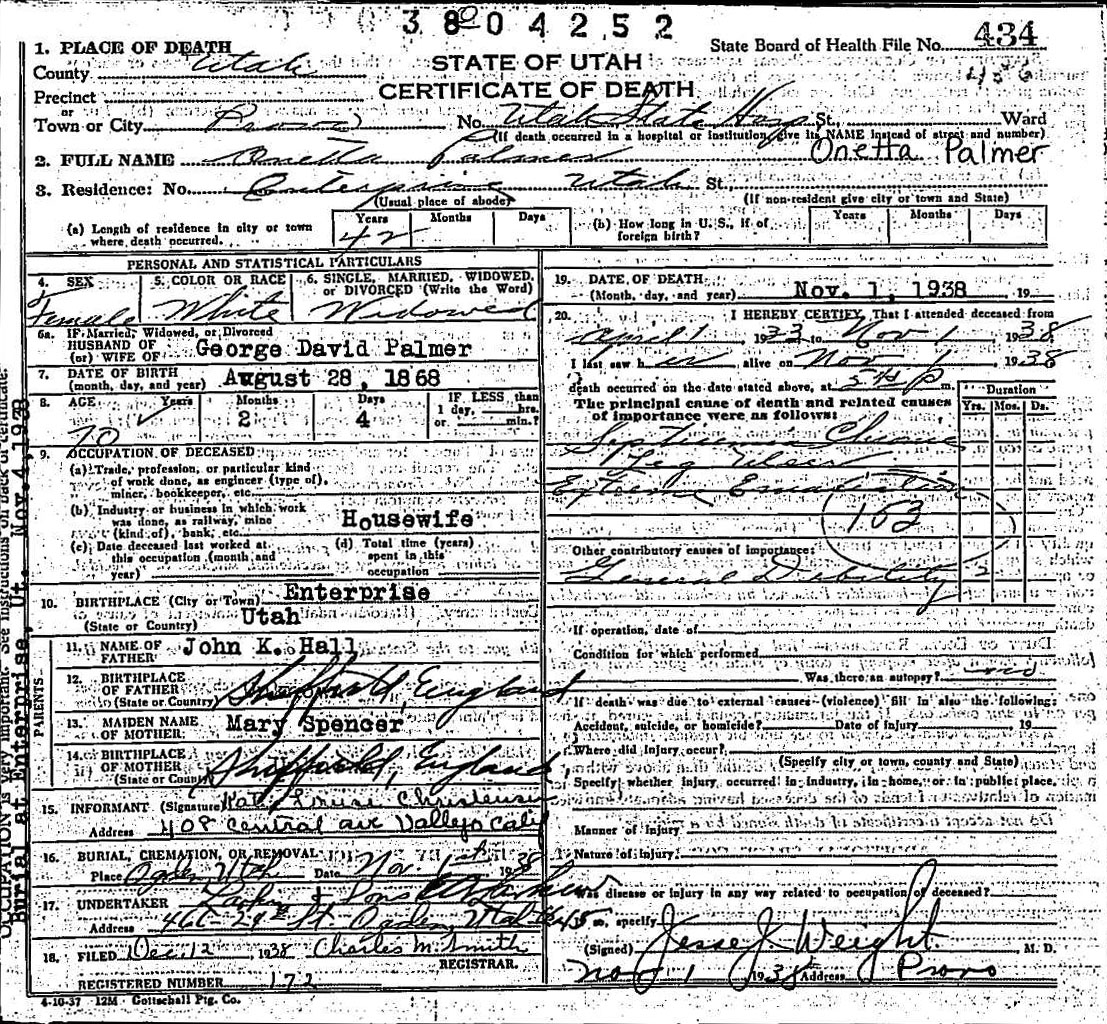 3804252
State Board of Health File No. 434
1. PLACE OF DEATH
County Utah
STATE OF UTAH
456
Precinct
CERTIFICATE OF DEATH
or
Town or City Provo No. Utah State Hosp St., Ward
(If death occurred in a hospital or institution, give its NAME instead of street and number)
2. FULL NAME Onetta Palmer Onetta Palmer
3. Residence: No. Enterprise Utah St.,
(Usual place of abode) (If non-resident give city or town and State)
(a) Length of residence in city or town where death occurred. Years Months Days
42
(b) How long in U. S., if of foreign birth? Years Months Days
PERSONAL AND STATISTICAL PARTICULARS
4. SEX 5. COLOR OR RACE 6. SINGLE, MARRIED, WIDOWED, or DIVORCED (Write the Word)
Female White Widowed
6a. IF Married, Widowed, or Divorced
HUSBAND OF
(or) WIFE OF George David Palmer
7. DATE OF BIRTH
(month, day, and year) August 28, 1868
8. AGE Years Months Days IF LESS than
1 day, hrs.
or min.?
70 2 4
9. OCCUPATION OF DECEASED
(a) Trade, profession, or particular kind
of work done, as engineer (type of),
miner, bookkeeper, etc.
(b) Industry or business in which work
was done, as railway, mine
(kind of), bank, etc. Housewife
(c) Date deceased last worked at
this occupation (month and
year)
(d) Total time (years)
spent in this
occupation
10. BIRTHPLACE (City or Town) Enterprise
(State or Country) Utah
PARENTS
11. NAME OF
FATHER John K. Hall
12. BIRTHPLACE
OF FATHER
(State or Country) Sheffield, England
13. MAIDEN NAME
OF MOTHER Mary Spencer
14. BIRTHPLACE
OF MOTHER
(State or Country) Sheffield, England
15. INFORMANT (Signature) Katy Louise Christensen
Address 408 Central ave Vallejo Calif
16. BURIAL, CREMATION, OR REMOVAL
Place Ogden Utah Date Nov. 1st 1938
17. UNDERTAKER Larkin & Sons
Address 466-24th St. Ogden, Utah
18. FILED Dec. 12 1938 Charles M. Smith
REGISTRAR.
REGISTERED NUMBER 172
4-10-37 12M Gottschall Ptg. Co.
19. DATE OF DEATH
(Month, day, and year) Nov. 1, 1938 19
20. I HEREBY CERTIFY, That I attended deceased from
April 1 1933 to Nov 1 1938
I last saw her alive on Nov 1 1938
death occurred on the date stated above, at m.
The principal cause of death and related causes
of importance were as follows:
Duration
Yrs. Mos. Ds.
Septicemia Chronic
Leg Ulcer
Extreme Emaciation
153
Other contributory causes of importance:
General Debility
If operation, date of
Condition for which performed
Was there an autopsy?
If death was due to external causes (violence) fill in also the following:
Accident, suicide, or homicide? Date of injury 19
Where did injury occur?
(Specify city or town, county and State)
Specify whether injury occurred in industry, in home, or in public place.
Manner of injury
Nature of injury
Was disease or injury in any way related to occupation of deceased?
specify
(Signed) Jesse J. Weight M. D.
Nov 1 1938 Address Provo
OCCUPATION is very important. See instructions on back of certificate.
Burial at Enterprise, Ut. Nov.4,1938